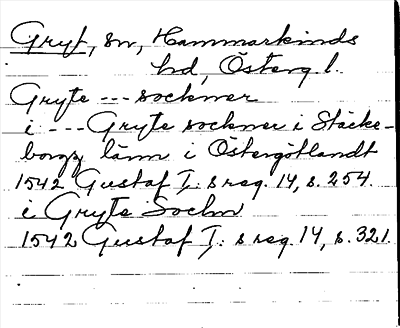 Gryt, sn, Hammarkinds
hd, Österg.l.
Gryte --- sockner
i --- Gryte sockner i Stäcke-
borgz länn i Östergötlandt
1542 Gustaf I:s reg. 14, s. 254.
i Gryte Sochn
1542 Gustaf I:s reg. 14, s. 321.